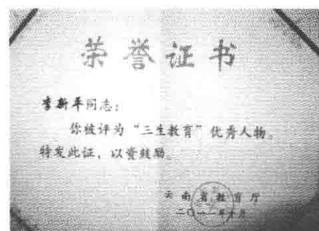 荣誉证书
李新平同志:
你被评为“三生教育”优秀人物。
特发此证,以资鼓励。
云南省教育厅
二〇一一年 月